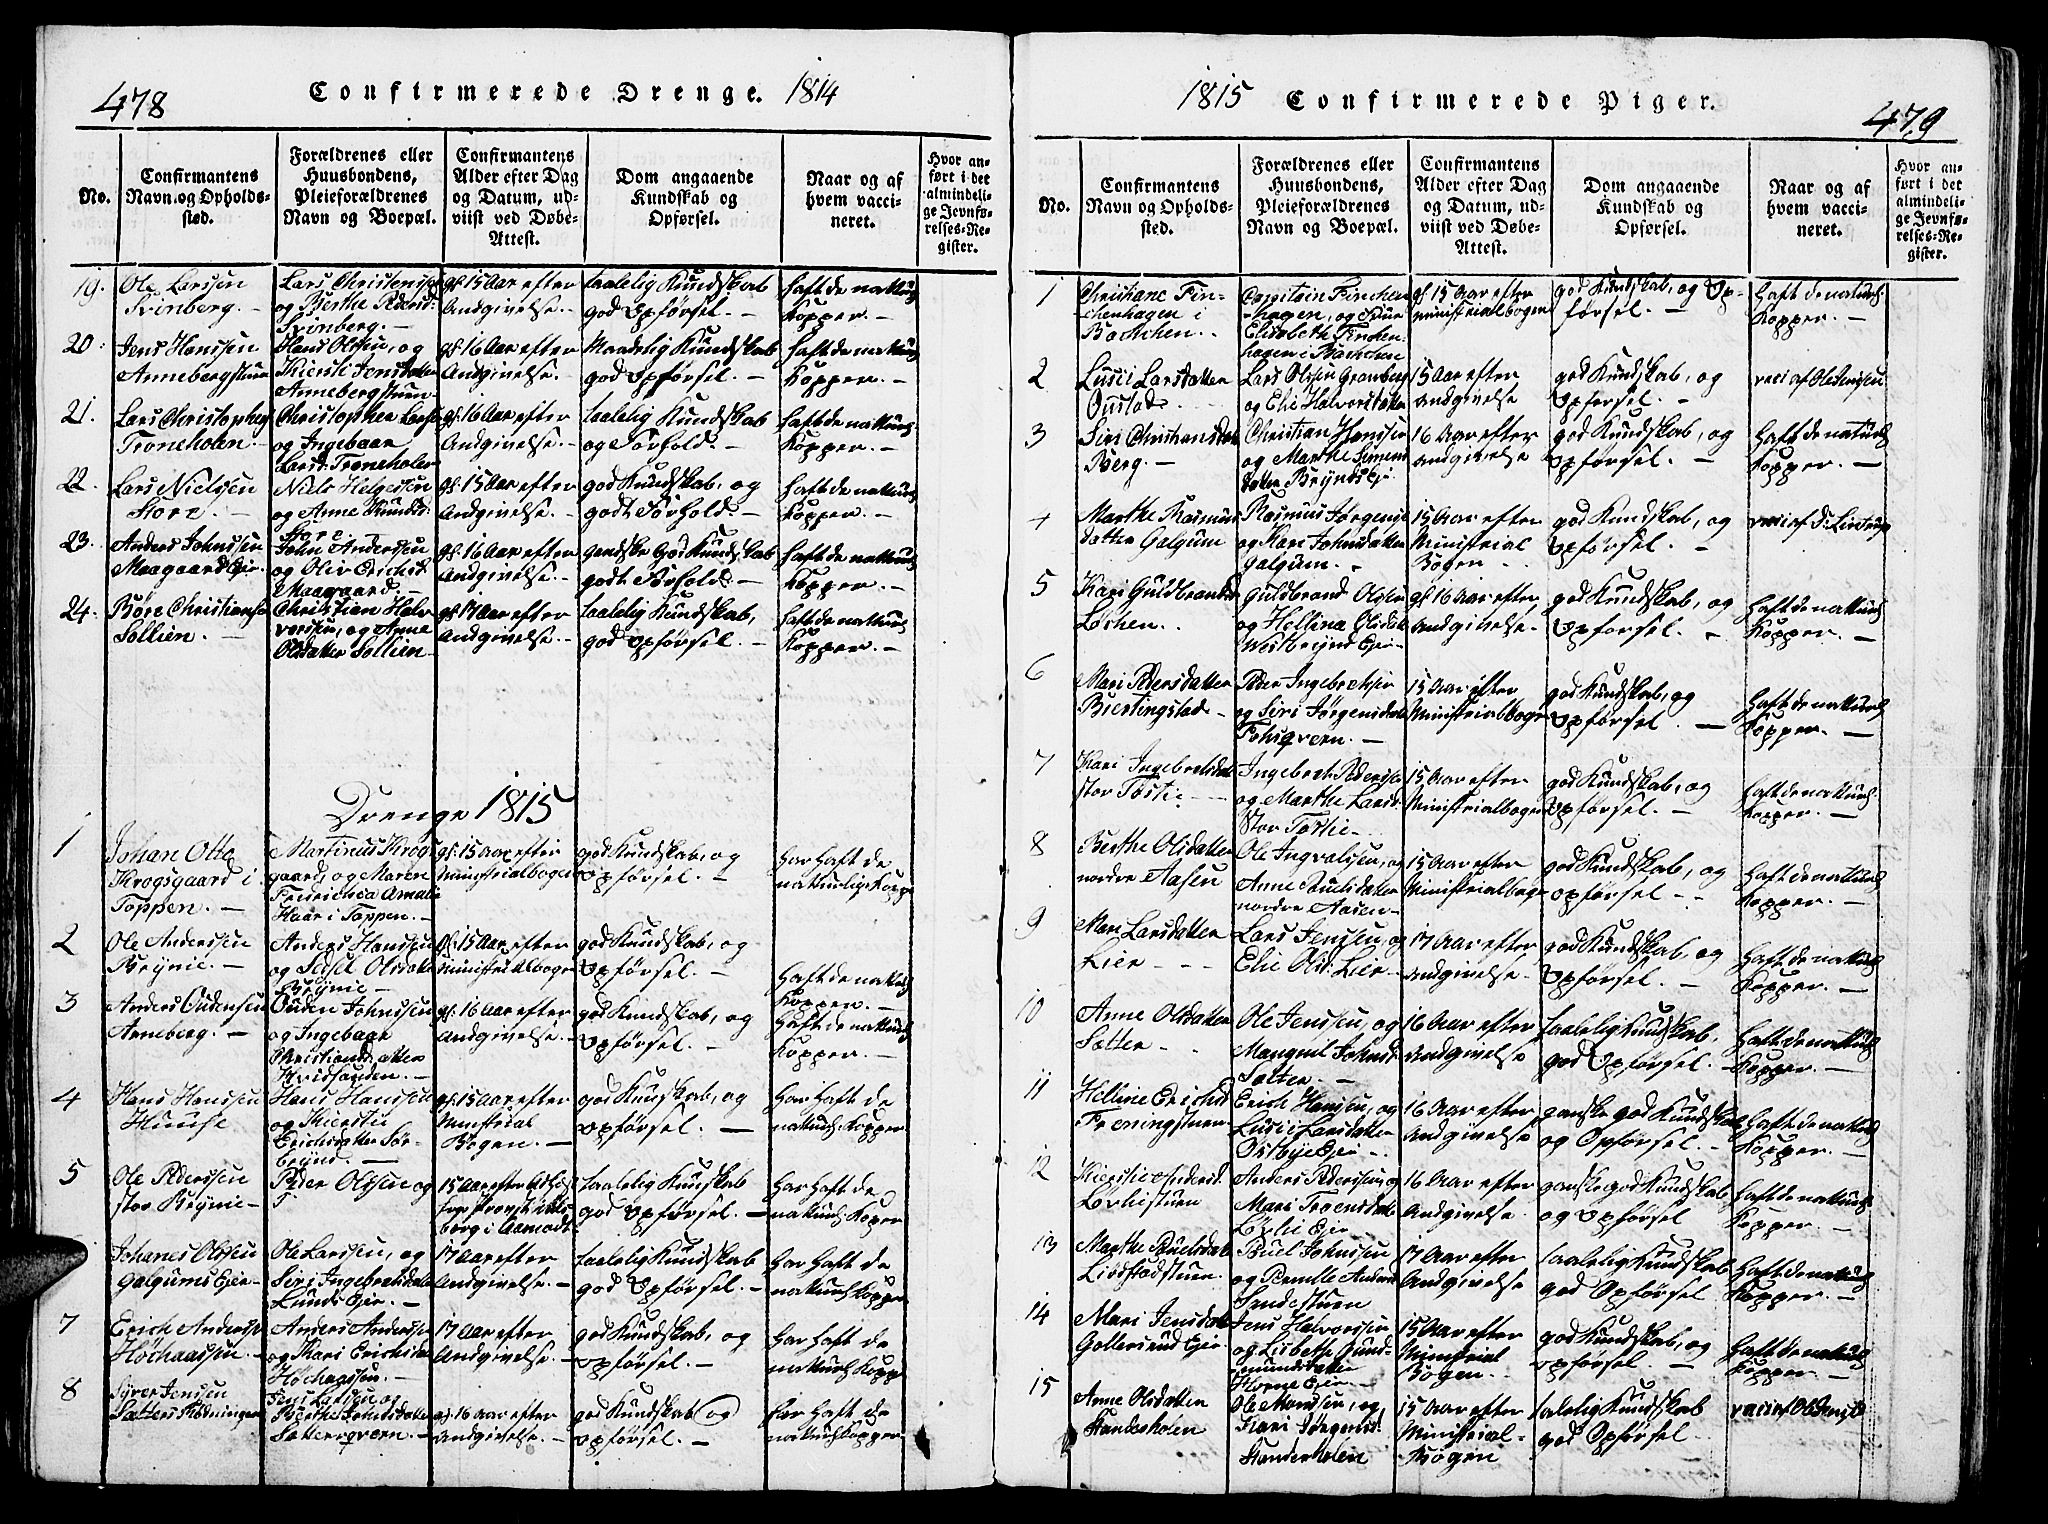 478
Confirmerede Drenge. 1814
No.
Confirmantens
Navn og Opholds-
sted.
Forældrenes eller
Huusbondens,
Pleieforældrenes
Navn og Boepæl.
Confirmantens
Alder efter Dag
og Datum, ud-
viist ved Døbe-
Attest.
Dom angaaende
Kundskab og
Opførsel.
Naar og af
hvem vacci-
neret.
Hvor an-
ført i det
almindeli-
ge Jevnfø-
relses-Re-
gister.
19.
Ole Larssen
Svinberg.
Lars Christenssen
og Berthe Pedersd:
Svinberg. -
gl. 15 Aar efter
Andgivelse. -
taalelig Kundskab
god Opførsel. -
haft de naturl:
Kopper. -
20.
Jens Hanssen
Annebergstuen
Hans Olssen, og
Kiersti Jensdatter
Annebergstuen
gl. 16 Aar efter
Andgivelse. -
Maadelig Kundskab
god Opførsel. -
haft de naturl:
Kopper. -
21.
Lars Christophers
Troneholen. -
Christopher Larss:
og Ingebaar
Larsd: Troneholen
gl. 16 Aar efter
Andgivelse. -
taalelig Kundskab
og Forhold. -
haft de naturl:
Kopper. -
22.
Lars Nielssen
Store. -
Niels Helgessen
og Anne Knudsd:
Store
gl. 15 Aar efter
Andgivelse. -
god Kundskab, og
godt Forhold. -
haft de naturl:
Kopper. -
23.
Anders Johnssen
Maagaard Eier. -
John Anderssen
og Oliv Erichsd:
Maagaard. -
gl. 16 Aar efter
Andgivelse. -
gandske god Kundskab
godt Forhold. -
haft de naturl:
Kopper. -
24.
Børe Christianse
Sollien. -
Christian Hal-
vorssen, og Anne
Olsdatter Sollien
gl. 17 Aar efter
Andgivelse. -
taalelig Kundskab,
god Opførsel. -
haft de naturl:
Kopper. -
Drenge 1815
1
Johan Otto
Krogsgaard i
Toppen. -
Martinus Krogs-
gaard, og Maren
Fredericha Amalia
Haar i Toppen. -
gl. 15 Aar efter
Ministrialbogen
god Kundskab, og
Opførsel. -
Har haft de
naturlige Kopp
2
Ole Anderssen
Brynie. -
Anders Hanssen
og Sidsel Olsdatter
Brynie -
gl. 15 Aar efter
Ministrialbogen
god Kundskab, og
Opførsel. -
haft de naturl:
Kopper. -
3
Anders Oudenssen
Anneberg. -
Ouden Johnssen
og Ingebaar
Christiansdatter
Hvidsanden. -
gl. 16 Aar efter
Andgivelse. -
god Kundskab, og
Opførsel. -
haft de naturl:
Kopper. -
4
Hans Hanssen
Huuse
Hans Hanssen
og Kierstie
Erichsdatter Sør-
Brynd. -
gl. 15 Aar efter
Ministrial
Bogen. -
god Kundskab, og
Opførsel. -
Har haft de
naturl: Kopper
5
Ole Pederssen
Stor Brynie -
Peder Olssen og
15 Aar efter
berg i Aamodt
taalelig Kundskab
god Opførsel. -
Har haft de
naturl: Koper
Johanes Olssen
Galgums Eier -
Ole Larssen, og
Siri Ingebretsdatter
Lunds Eier. -
17 Aar efter
Andgivelse. -
taalelig Kundskab
god Opførsel. -
Har haft de
naturl: Kopper
7
Erich Anderss
Høchaassen. -
Anders Anderss
og Kari Erichsda
Høchaassen. -
17 Aar efter
Andgivelse. -
god Kundskab, og
Opførsel. -
Har haft de
naturl: Kopp
8
Syver Jenssen
og
Berthe Johnsdatter
Sætterqværn. -
gl. 16 Aar efter
Andgivelse. -
god Kundskab og
Opførsel. -
har haft de
naturl: Kopper
1815 Confirmerede Piger.
479
No.
Confirmantens
Navn og Opholds-
sted.
Forældrenes eller
Huusbondens,
Pleieforældrenes
Navn og Boepæl.
Confirmantens
Alder efter Dag
og Datum, ud-
viist ved Døbe-
Attest.
Dom angaaende
Kundskab og
Opførsel.
Naar og af
hvem vacci-
neret.
Hvor an-
ført i det
almindeli-
ge Jevnfø-
relses-Re-
gister.
1
Christiane Fin-
chenhagen i
Bachchen. -
Capitain Finchen-
hagen, og Frue
Elisabeth Finchen-
hagen i Bachchen
gl. 15 Aar efter
Ministrialbogen
god Kundskab, og Op-
førsel. -
Haft de naturl:
Kopper. -
2
Lusii Larsdatter
Onstad.
Lars Olssen Granberg
og Eli Halvorsdatter
15 Aar efter
Andgivelse
god Kundskab, og
Opførsel. -
vaci af Ole Jenssen
3
Siri Christiansdat
Berg. -
Christian Hanssen
og Marthe Simens
datter Brynds Ejer
16 Aar efter
Andgivelse
god Kundskab, og
Opførsel. -
Haft de naturl:
Kopper. -
4
Marthe Rasmus
datter Galgum
Rasmus Jørgenss
og Kari Johnsdatter
Galgum. -
15 Aar efter
Ministrial
Bogen
god Kundskab, og
Opførsel. -
5
Kari Guldbrandsd
Løchen.
Guldbrand Olssen
og Hellina Olsdat
Westbrynd Ejer
gl. 16 Aar efter
Andgivelse -
god Kundskab, og
Opførsel. -
Haft de naturl:
Kopper. -
6
Mari Pedersdatter
Biertingstad -
Peder Ingebretssen
og Siri Jørgensdat
Fohsqvern. -
15 Aar efter
Ministrialbogen
god Kundskab, og
Opførsel. -
Haft de naturl:
Kopper. -
7
Kari Ingebretsdat
Stor Tøstie
Ingebret Pederssen
og Marthe Larsd:
Stor Tøstie -
15 Aar efter
Ministrialbogen
god Kundskab, og
Opførsel. -
haft de naturl:
Kopper. -
8
Berthe Olsdatter
nordre Aasen
Ole Ingvalssen, og
Anne Buelsdatter
nordre Aasen -
15 Aar efter
Ministrialbogen
god Kundskab, og
Opførsel. -
Haft de naturl:
Kopper. -
9
Mari Larsdatter
Lier
Lars Jenssen, og
Elie Olsd: Lier -
17 Aar efter
Andgivelse -
god Kundskab, og
Opførsel. -
Haft de naturl:
Kopper. -
10
Anne Olsdatter
Sætter
Ole Jenssen, og
Mangnil Johnsd:
Sætter. -
16 Aar efter
Andgivelse
taalelig Kundskab,
god Opførsel. -
Haft de naturl:
Kopper. -
11
Helline Erichsd
Freningstuen
Erich Hanssen, og
Lusie Larsdatter
Østbye Ejer -
16 Aar efter
Andgivelse
ganske god Kundskab
og Opførsel. -
Haft de naturl:
Kopper. -
12
Kierstie Andersd.
Løvliestuen
Anders Pederssen, og
Mari Troensdatter
Løvli Ejer
16 Aar efter
Andgivelse
ganske god Kundskab
og Opførsel
Haft de naturl:
Kopper. -
13
Marthe Buelsdat
Lidstadstuen
Buel Johnssen
og Pernille Andersd
Sandestuen
17 Aar efter
Andgivelse
taalelig Kundskab
god Opførsel
Haft de naturl:
Kopper. -
14
Mari Jensdat
Gollersrud Ejer
Jens Halvorssen
og Lisbeth Gund-
mundsdatter
Horne Ejer -
15 Aar efter
Ministrial
Bogen.
god Kundskab, og
Opførsel. -
Haft de naturl:
Kopper. -
15
Anne Olsdatter
Standerholen
Ole Monssen, og
Kari Jørgensd:
Standerholen
15 Aar efter
Ministrial-
Bogen
taalelig Kundskab
god Opførsel